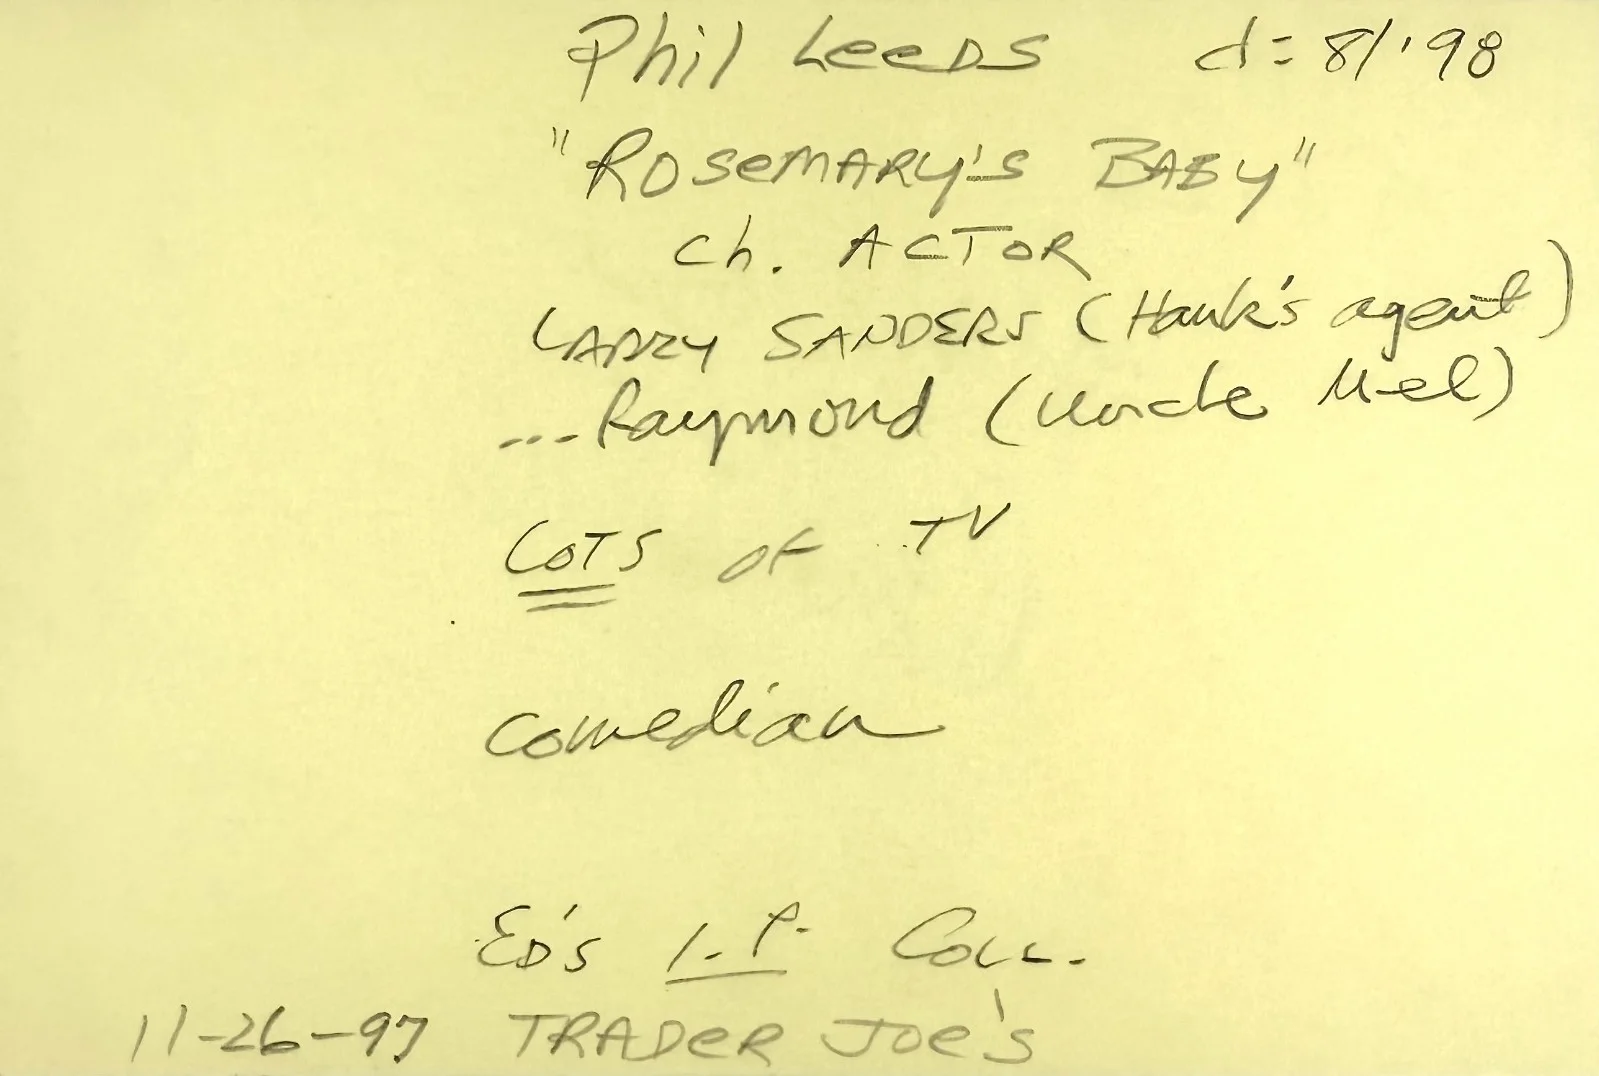 Phil Leeds d= 8/'98
"Rosemary's Baby"
Ch. Actor
Larry Sanders (Hank's agent)
...Raymond (Uncle Mel)
Lots of TV
Comedian
Ed's I.P. Coll.
11-26-97 Trader Joe's